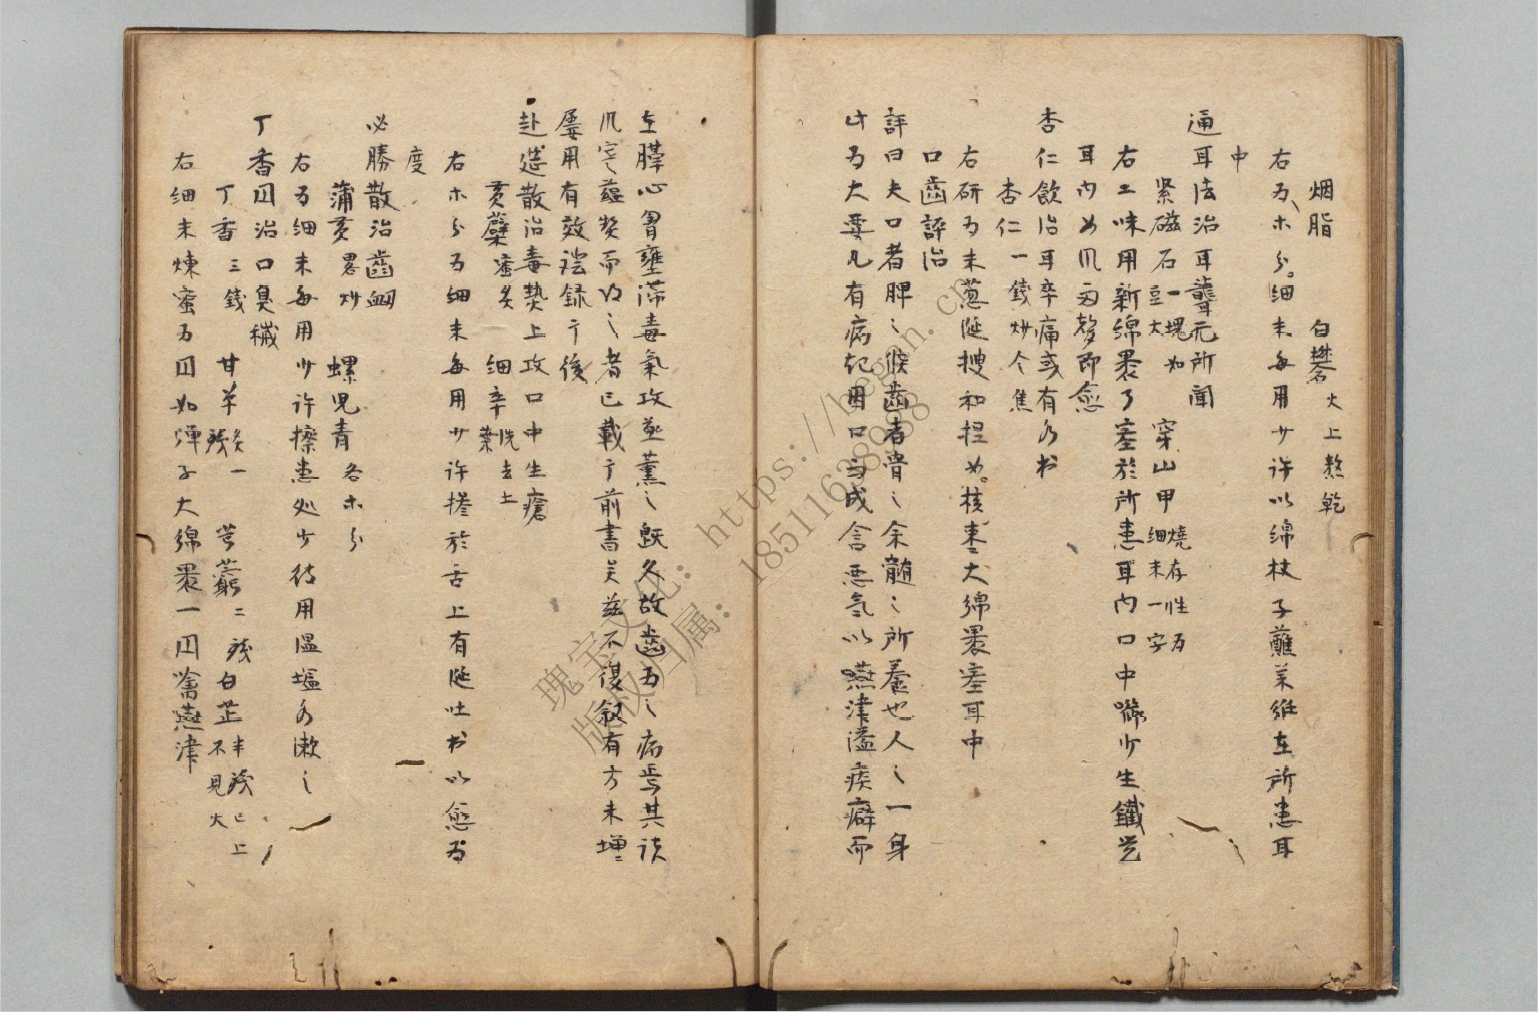 烟脂　白礬火上熬乾
右為等分細末每用少許以綿杖子蘸藥絍在所患耳
中
通耳法治耳聾無所聞
緊磁石一塊如豆大　穿山甲燒存性為細末一字
右二味用新綿裹了塞於所患耳內口中嚼少生鐵覺
耳內如風雨聲即愈
杏仁飲治耳卒痛或有水出
杏仁一錢炒令焦
右研為末葱涎搜和捏如棗核大綿裹塞耳中
口齒評治
評曰夫口者脾之候齒者骨之余髓之所養也人之一身
此為大要凡有病起因口而成含惡氣以嚥津溢痰癖而
在膵心胃壅滯毒氣攻蒸薰之既久故齒為之病焉其於
風定蘊熱而得之者已載于前書矣茲不復敘有方未
屢用有效謹錄于後
赴筵散治毒熱上攻口中生瘡
黃蘗蜜炙　細辛洗去土葉
右等分為細末每用少許摻於舌上有涎吐出以愈為
度
必勝散治齒衄
蒲黃畧炒　螺兒青各等分
右為細末每用少許擦患処少待用溫塩水漱之
丁香囚治口臭穢
丁香三錢　甘草炙一錢　芎藭二錢　白芷半錢已上不見火
右細末煉蜜為囚如彈子大綿裹一囚噙嚥津
瑰宝文化：https://began.cn
版权归属：18511638988